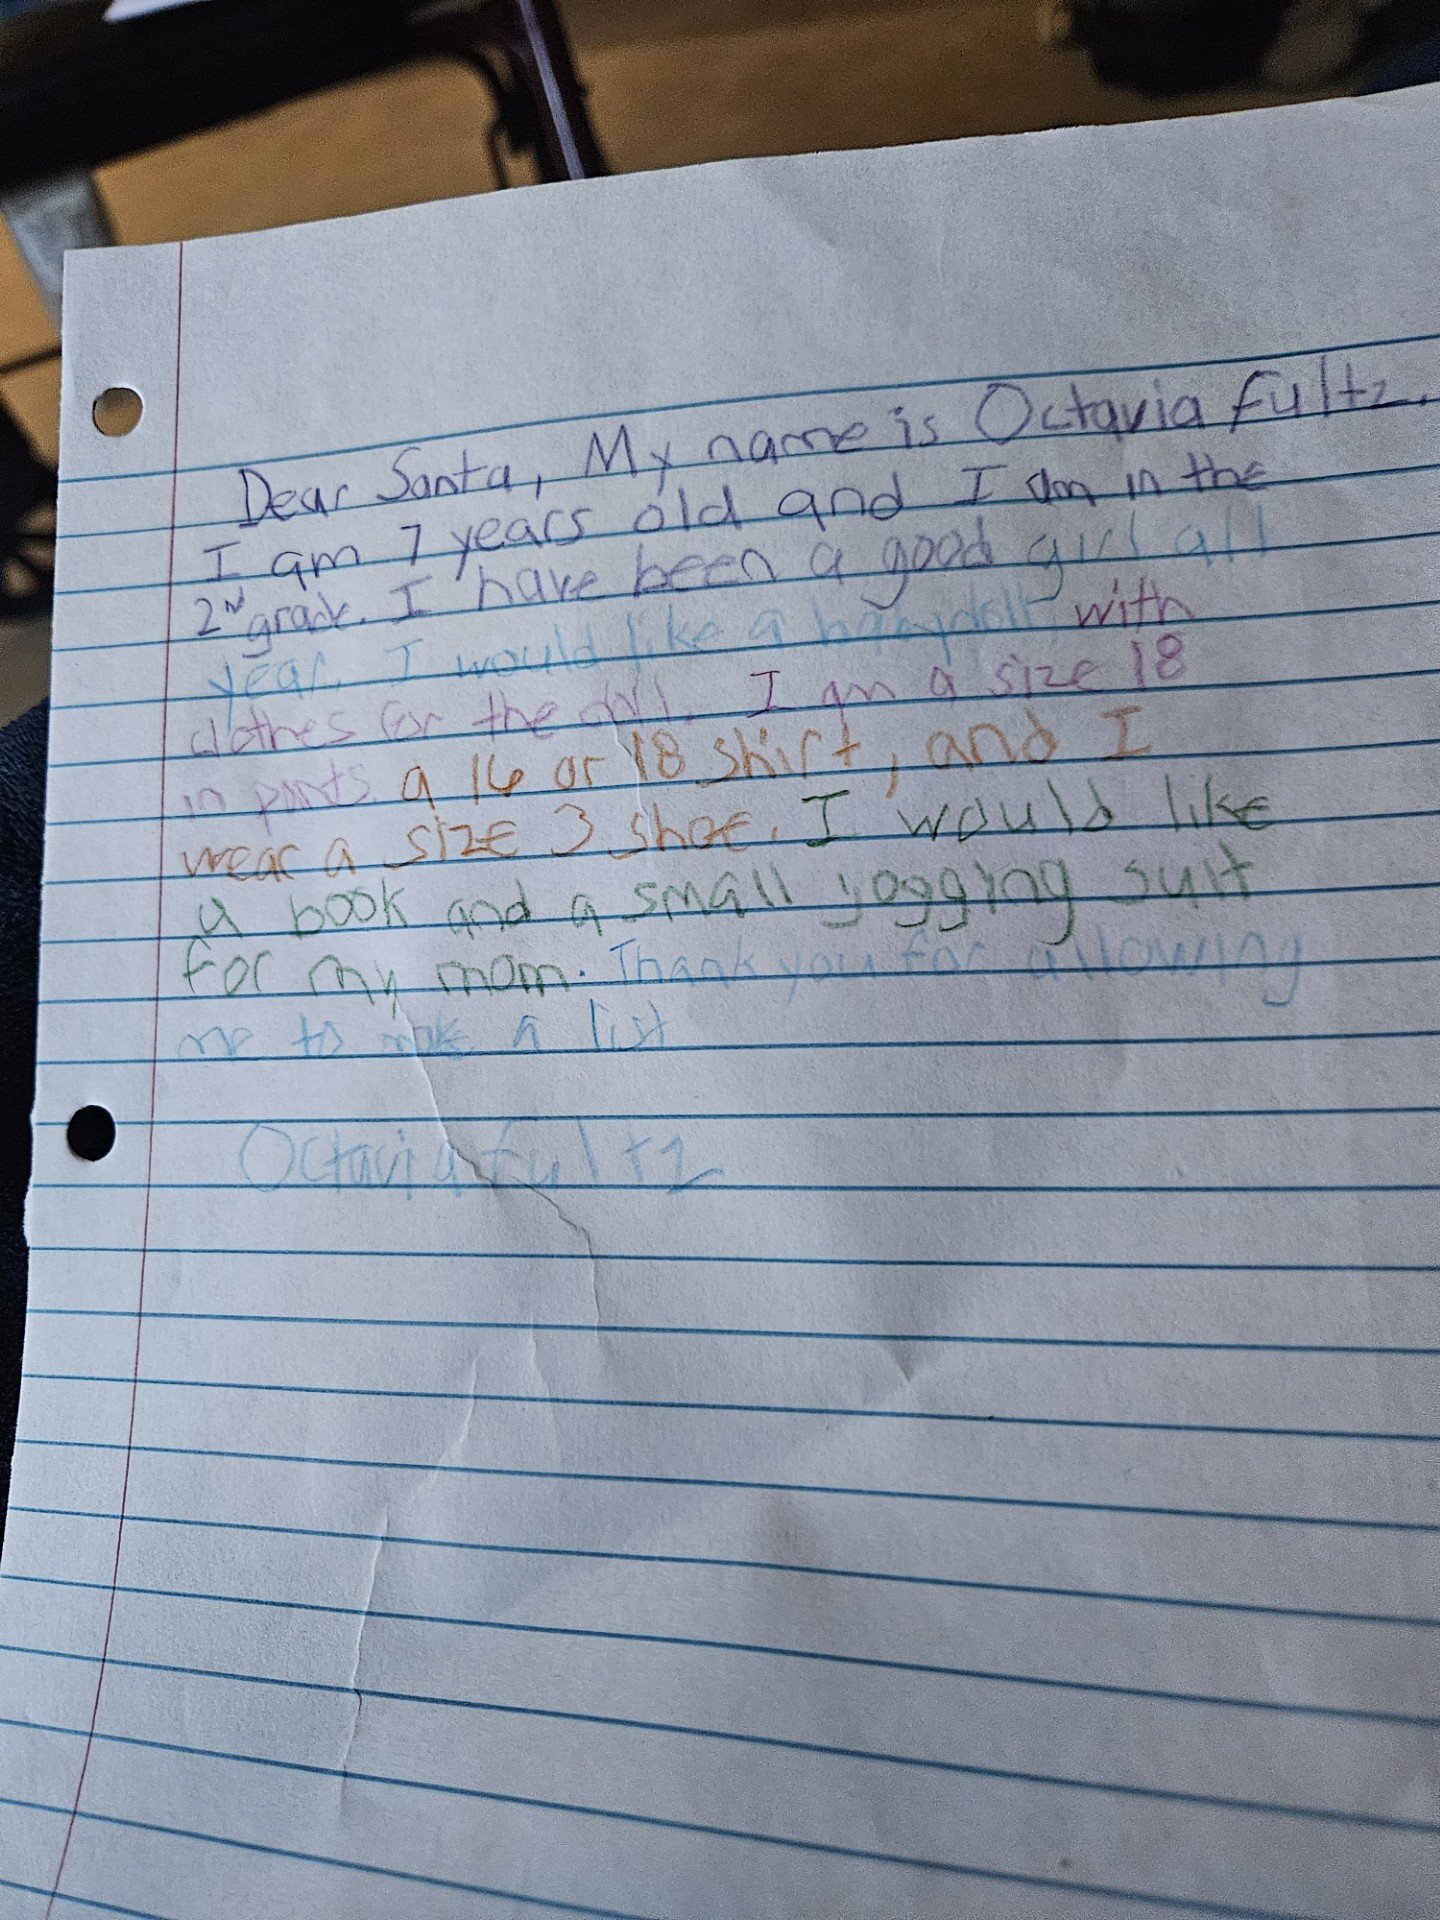 Dear Santa, My name is Octavia fultz.
I am 7 years old and I am in the
2nd grade. I have been a good girl all
year. I would like a babydoll, with
clothes for the doll. I am a size 18
in pants a 16 or 18 shirt, and I
wear a size 3 shoe. I would like
a book and a small jogging suit
for my mom. Thank you for allowing
me to make a list
Octavia fultz